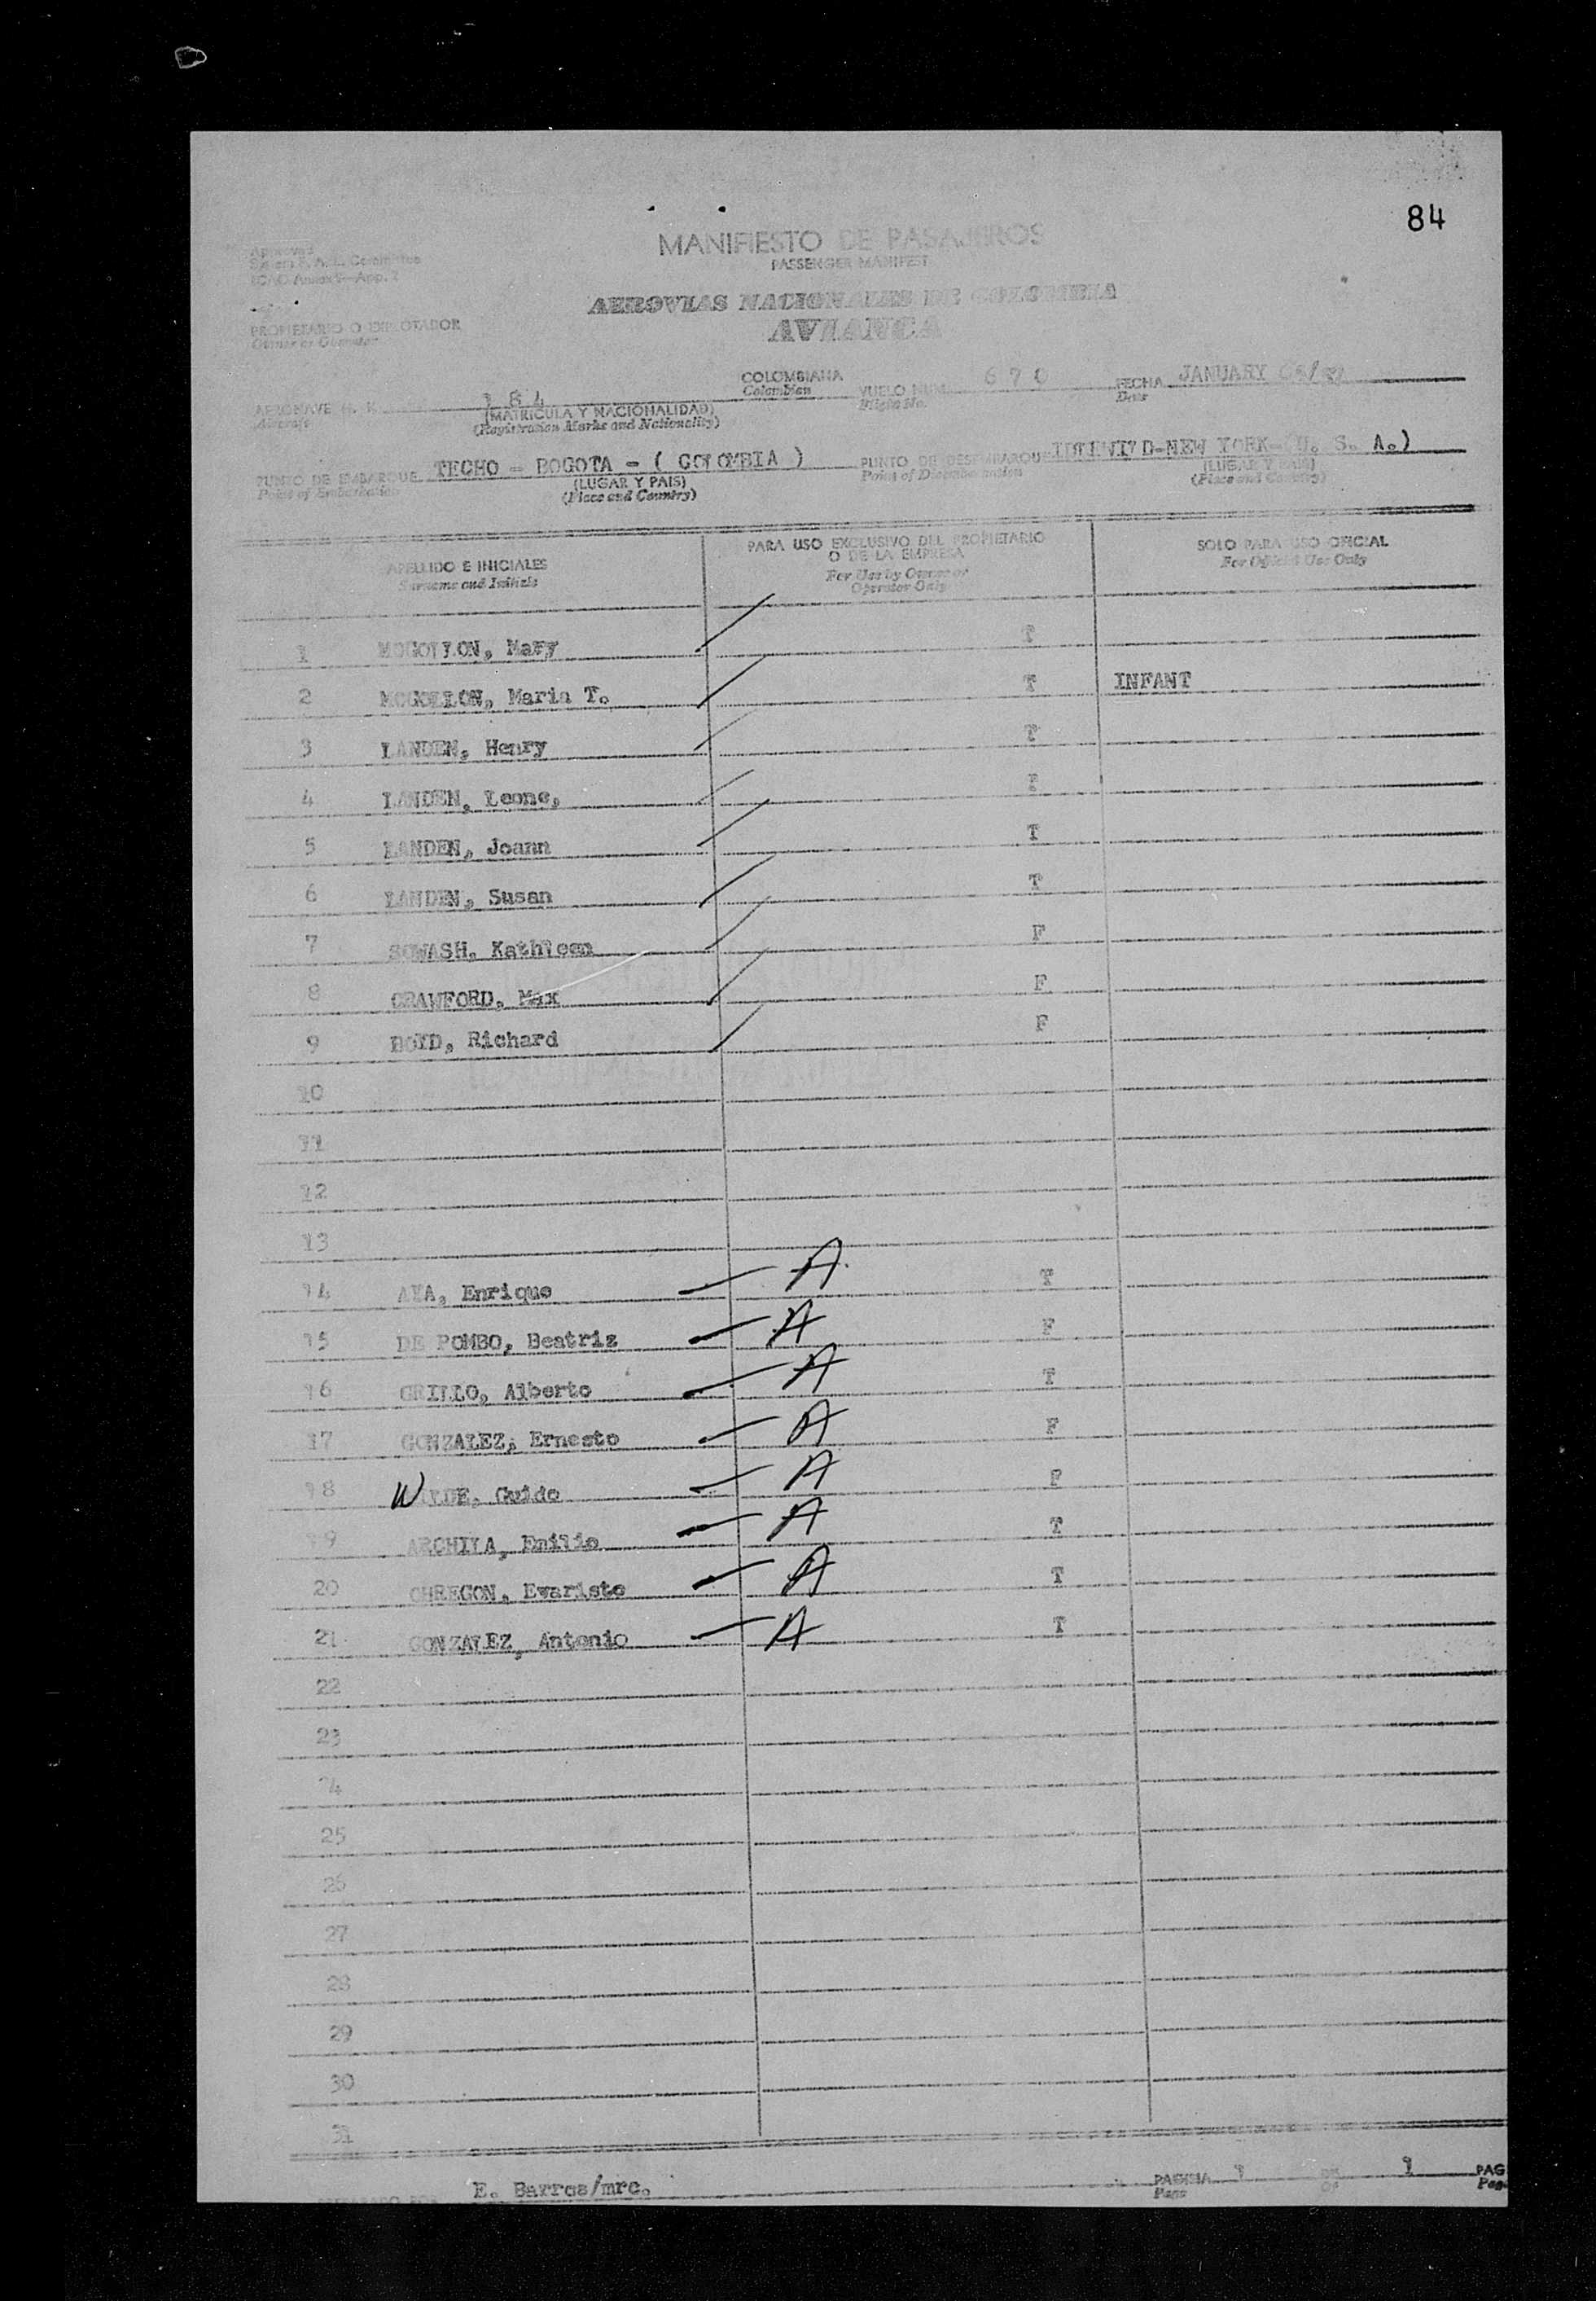 84
MANIFIESTO DE PASAJEROS
PASSENGER MANIFEST
Approved
ICAO Annex 9-App. 2
AEROVIAS NACIONALES DE COLOMBIA
AVIANCA
PROPIETARIO O EXPLOTADOR
Owner or Operator
AERONAVE H. K. 184 COLOMBIANA VUELO NUM. 670 FECHA JANUARY
Aircraft (MATRICULA Y NACIONALIDAD) Colombian Flight No. Date
(Registration Marks and Nationality)
PUNTO DE EMBARQUE TECHO - BOGOTA - ( COLOMBIA ) PUNTO DE DESEMBARQUE IDLEWILD-NEW YORK- U. S. A.)
Point of Embarkation (LUGAR Y PAIS) Point of Disembarkation (LUGAR Y PAIS)
(Place and Country) (Place and Country)
APELLIDO E INICIALES PARA USO EXCLUSIVO DEL PROPIETARIO O DE LA EMPRESA SOLO PARA USO OFICIAL
Surname and Initials For Use by Owner or Operator Only For Official Use Only
1 MOGOLLON, Mary T
2 MOGOLLON, Maria T. T INFANT
3 LANDEN, Henry T
4 LANDEN, Leone,
5 LANDEN, Joann T
6 LANDEN, Susan T
7 SOWASH, Kathleen F
8 CRAWFORD, Max F
9 BOYD, Richard F
10
11
12
13
14 AYA, Enrique A T
15 DE POMBO, Beatriz A F
16 GRILLO, Alberto A T
17 GONZALEZ, Ernesto A F
18 WILDE, Guido A F
19 ARCHILA, Emilio A T
20 OBREGON, Evaristo A T
21 GONZALEZ, Antonio A T
22
23
24
25
26
27
28
29
30
31
E. Barros/mrc. PAGINA 1 DE 1 PAG
Page Of Pag